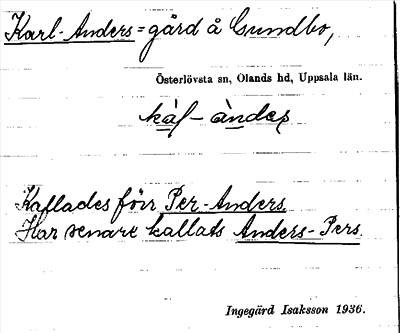 Karl-Anders=gård å Gundbo,
Österlövsta sn, Olands hd, Uppsala län.
kàl-àndeş
Kallades förr Per-Anders.
Har senare kallats Anders-Pers.
Ingegärd Isaksson 1936.